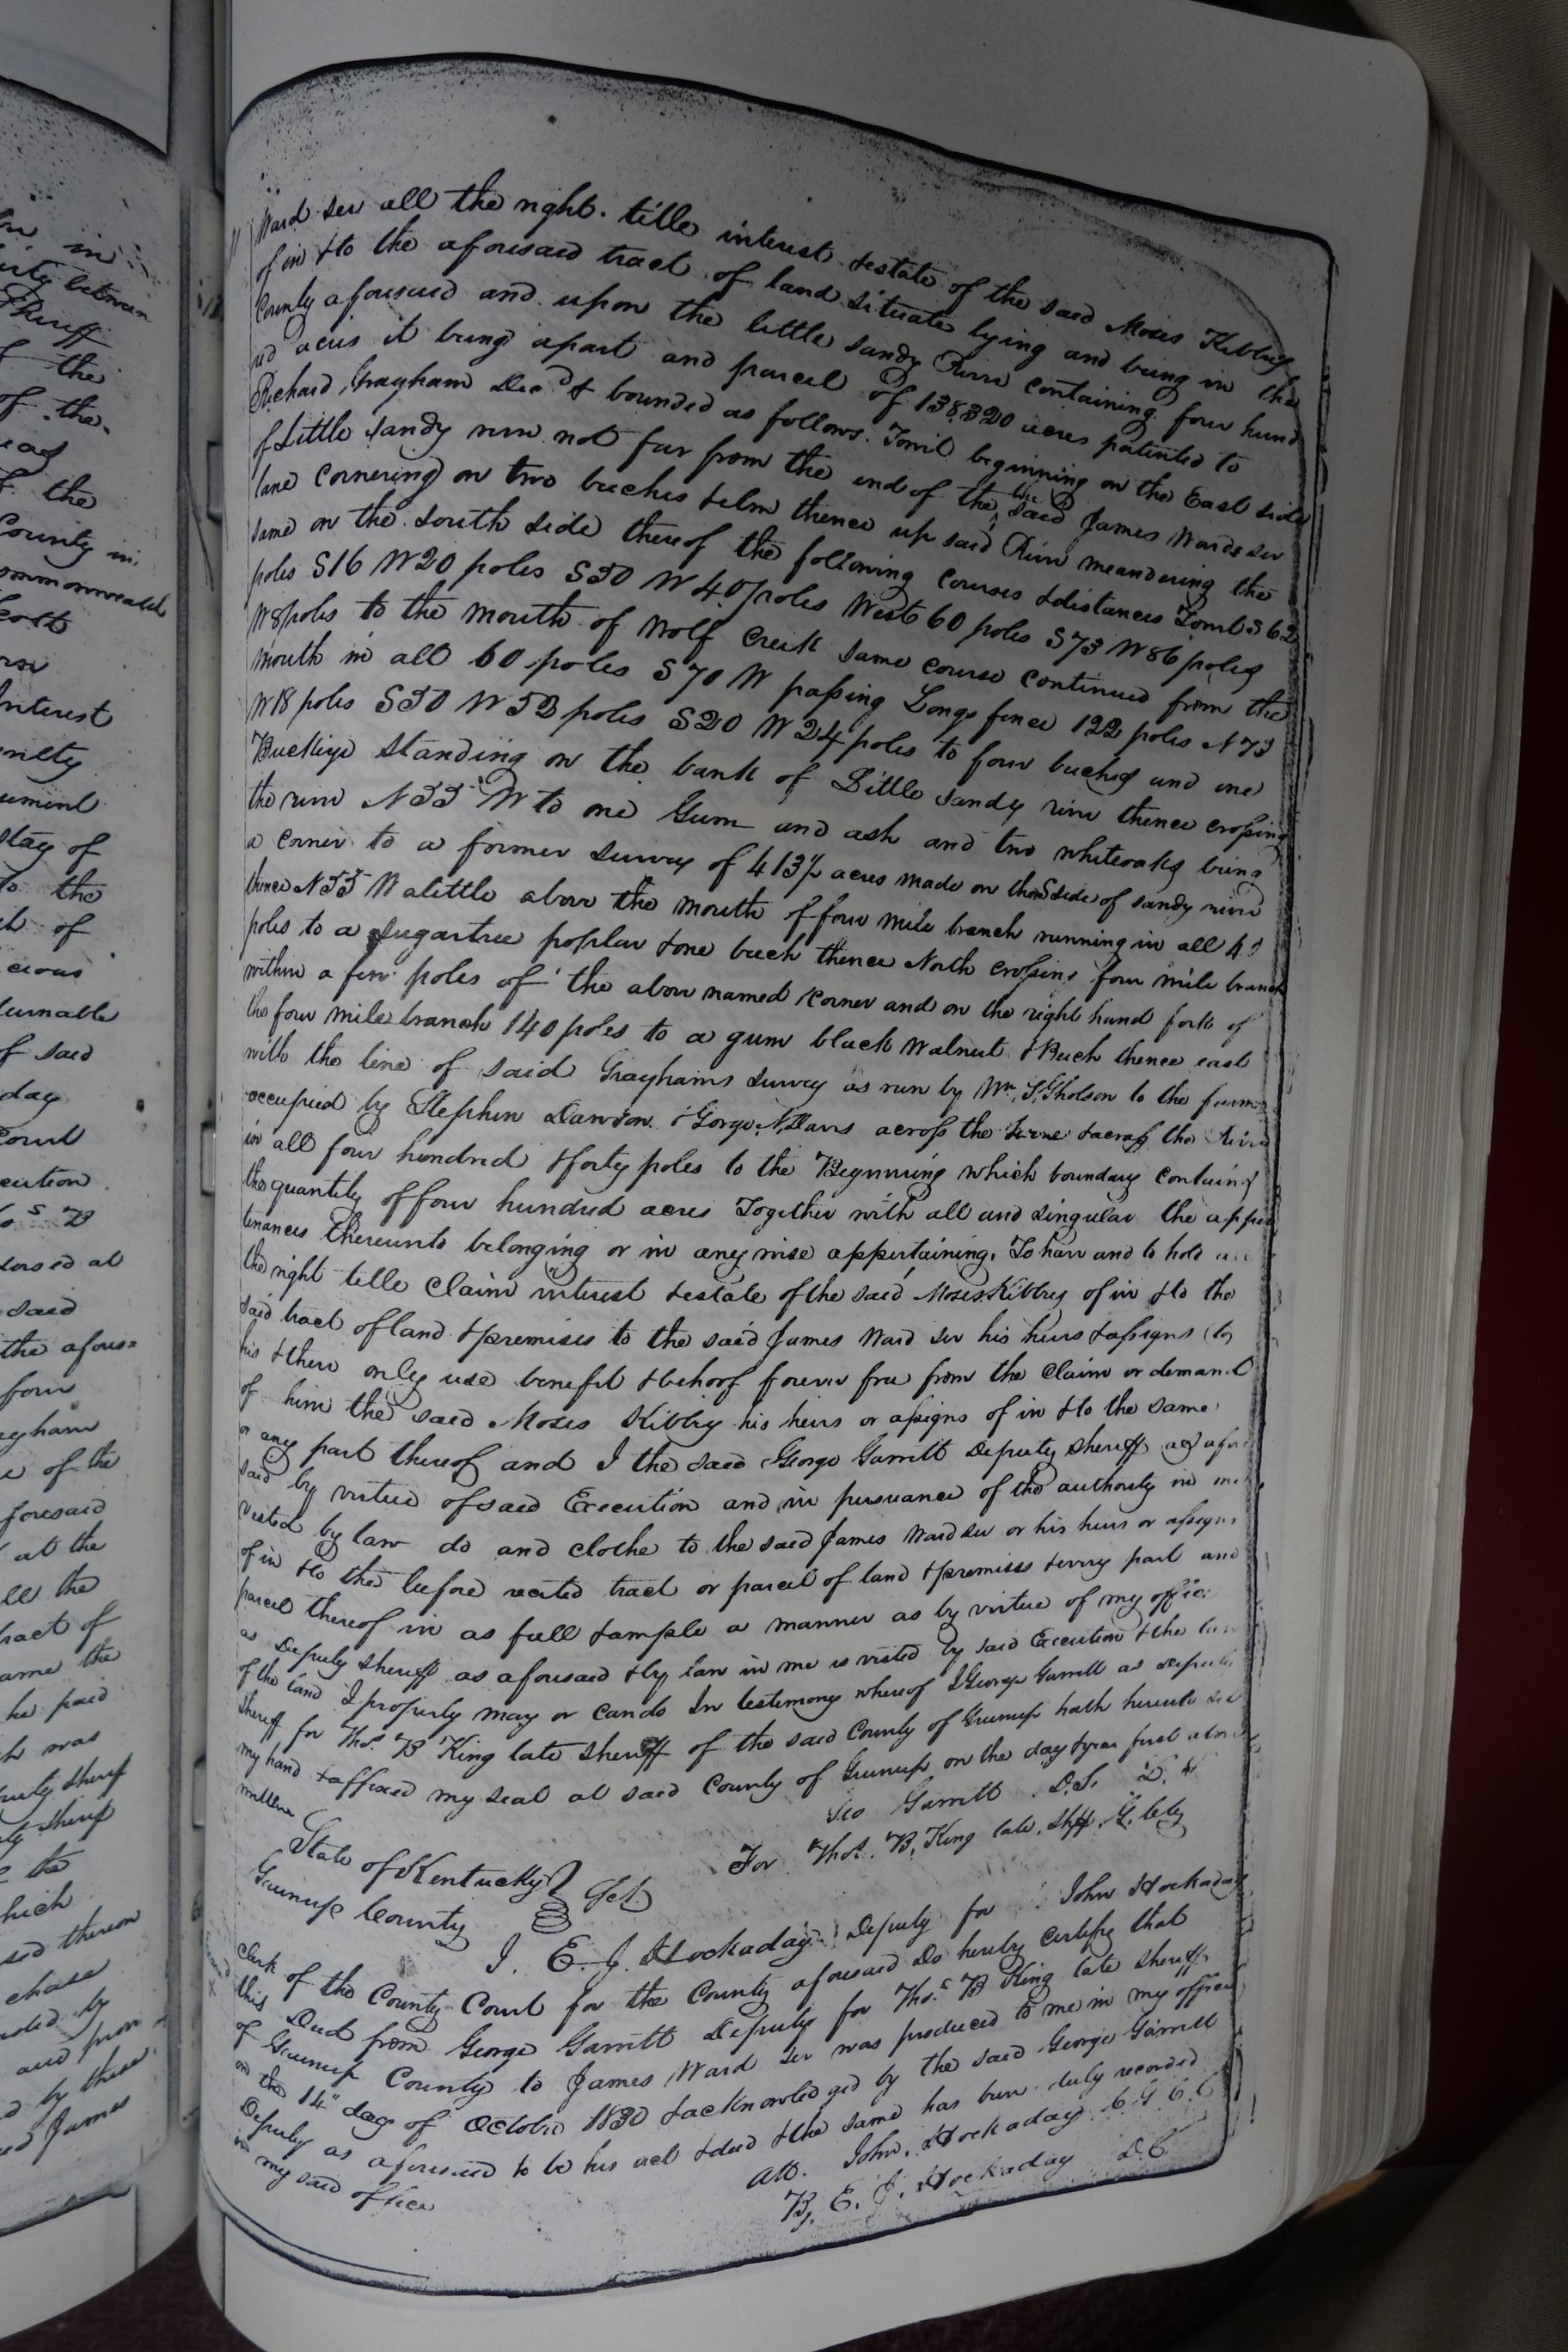 in
between
Sheriff
the
of the
the
County in
ommonwealth
Costs
Interest
stay of
to the
of
cious
of said
day
Court
ecution
dorsed at
said
the afores=
four
aygham
of the
foresaid
at the
all the
tract of
ame the
he paid
was
puty Sheriff
the
which
sed thereon
by
by these
James
Ward ser all the right. title interest & estate of the said Moses Kibbey
of in & to the aforesaid tract of land situate lying and being in the
County aforesaid and upon the little sandy River containing four hund
ed acres it being apart and parcel of 138,320 acres patented to
Richard Graygham Decd & bounded as follows. Towit beginning on the East side
of Little Sandy river not far from the end of the said James Wards ser
lane Cornering on two beches & elm thence up said River meandering the
same on the south side thereof the following Courses & distances Towit S 62
poles S16 W20 poles S50 W 40 poles West 60 poles S73 W86 poles
W8 poles to the mouth of Wolf Creek same course continued from the
mouth in all 60 poles S70 W passing Longs fence 122 poles N73
W18 poles S50 W52 poles S20 W24 poles to four beches and one
Buckeye standing on the bank of Little Sandy river thence crossing
the river N55 W to one Gum and ash and two whiteoaks being
a corner to a former survey of 413½ acres made on the S side of sandy river
thence N55 W alittle above the mouth of four mile branch running in all 45
poles to a sugartree poplar & one beech thence North crossing four mile branch
within a few poles of the above named corner and on the right hand fork of
the four mile branch 140 poles to a gum black Walnut & Beech thence east
with the line of said Grayhams survey as run by Wm. S. Gholson to the farm
occupied by Stephen Dawson & George N. Davis across the & across the River
in all four hundred & forty poles to the Beginning which boundary contains
the quantity of four hundred acres Together with all and singular the appur
tenances thereunto belonging or in anywise appertaining. To have and to hold all
the right title Claim interest & estate of the said Moses Kibbey of in & to the
said tract of land & premises to the said James Ward ser his heirs & assigns to
his & their only use benefit & behoof forever free from the Claim or demand
of him the said Moses Kibbey his heirs or assigns of in & to the same
or any part thereof and I the said George Garrett Deputy Sheriff as afore
said by virtue of said Execution and in pursuance of the authority in me
vested by law do and clothe to the said James Ward ser or his heirs or assigns
of in & to the before recited tract or parcel of land & premises & every part and
parcel thereof in as full & ample a manner as by virtue of my office
as Deputy Sheriff as aforesaid & by law in me is vested by said Execution & the law
of the land I properly may or can do In testimony whereof I George Garrett as Deputy
Sheriff for Thos. B King late Sheriff of the said County of Greenup hath hereunto set
my hand & affixed my seal at said County of Greenup on the day & year first above
written
Geo Garrett D.S. L.S
For Thos. B. King late Shff. G. Cty
State of Kentucky
Greenup County Sct.
I. E. J. Hockaday Deputy for John Hockaday
Clerk of the County Court for the County aforesaid Do hereby Certify that
this Deed from George Garrett Deputy for Thos. B King late Sheriff
of Greenup County to James Ward ser was produced to me in my office
on the 14" day of October 1830 & acknowledged by the said George Garrett
Deputy as aforesaid to be his act & deed & the same has been duly recorded
in my said office
Att. John Hockaday C G C C
By E. J. Hockaday D.C